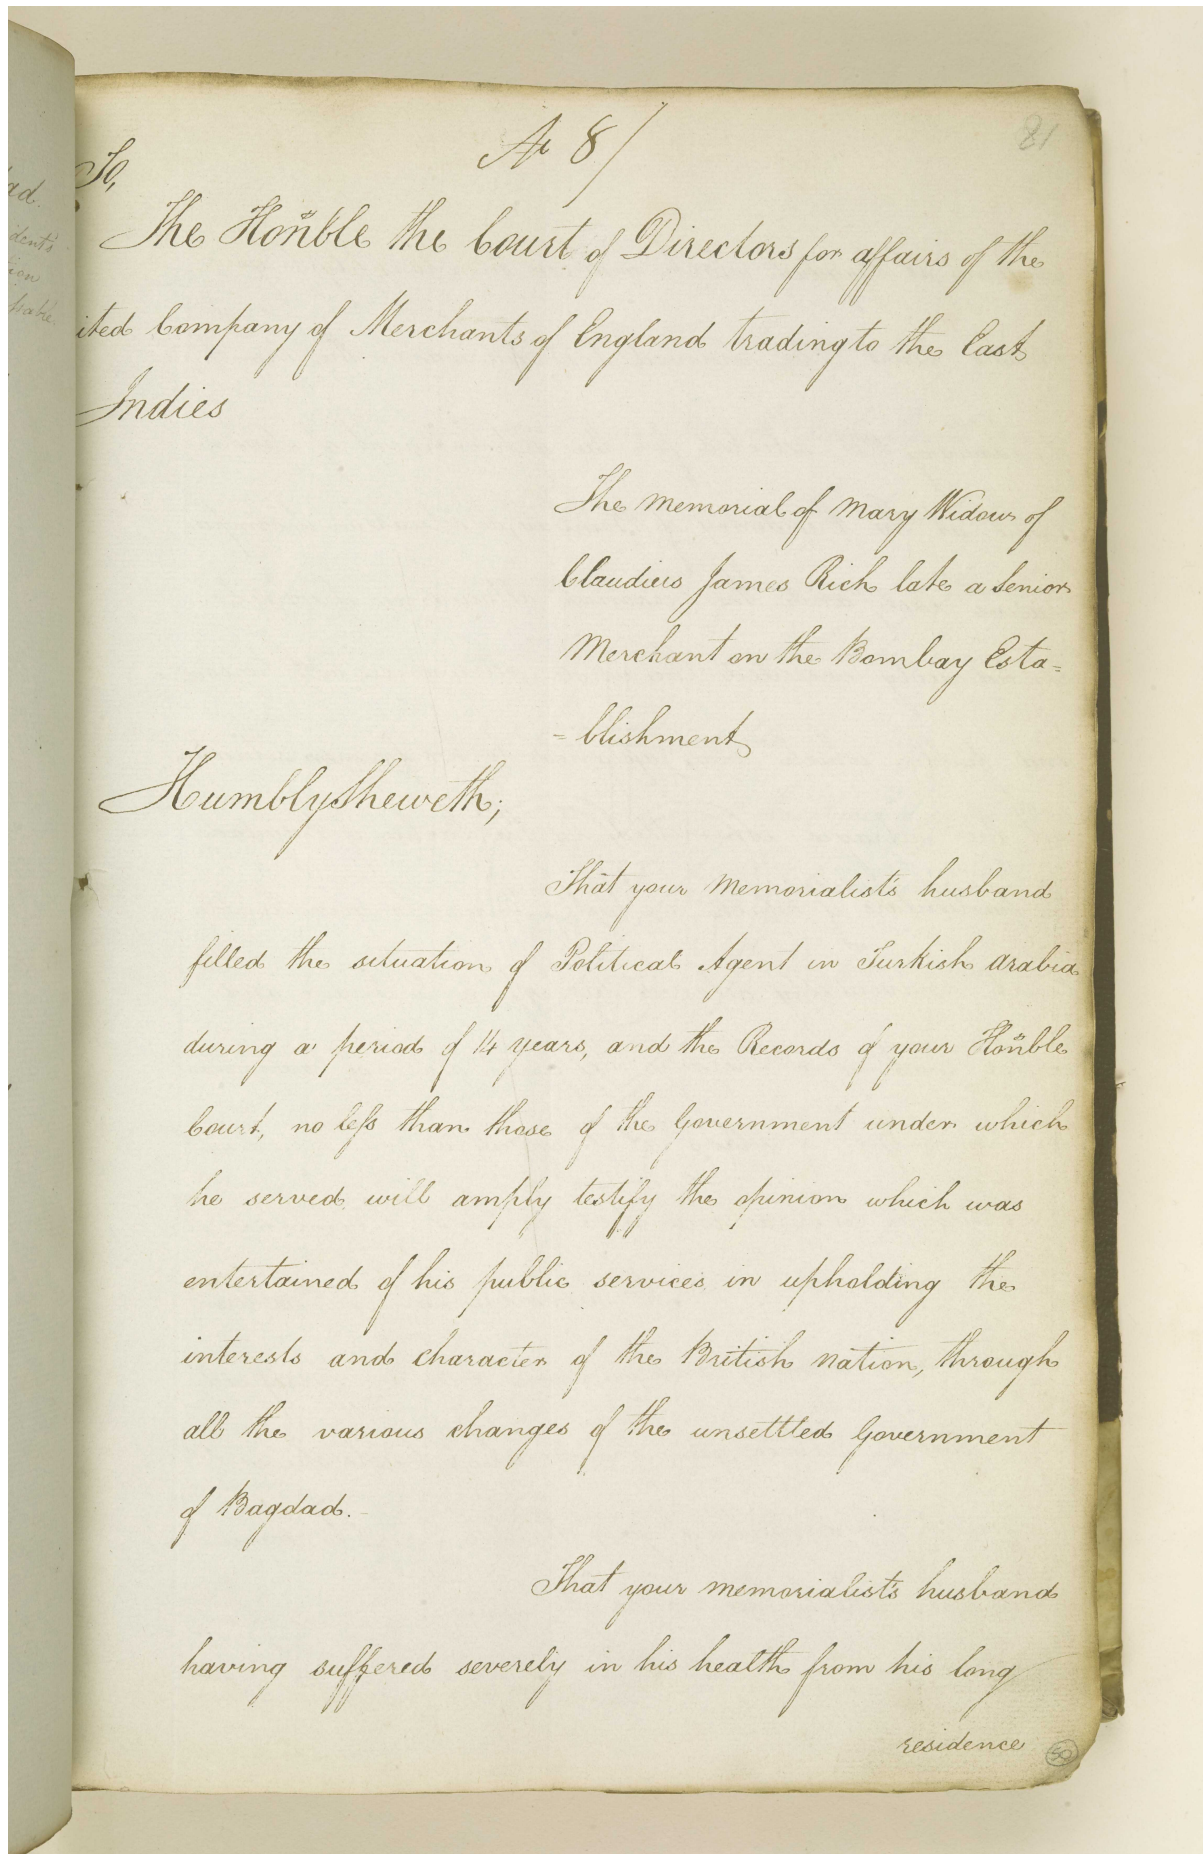 81
No 8/
To,
The Hoñble the Court of Directors for affairs of the
ited Company of Merchants of England trading to the East
Indies
The Memorial of Mary Widow of
Claudius James Rich late a Senior
Merchant on the Bombay Esta=
=blishment
Humbly Sheweth;
That your Memorialist's husband
filled the situation of Political Agent in Turkish Arabia
during a period of 14 years, and the Records of your Hoñble
Court, no less than those of the Government under which
he served will amply testify the opinion which was
entertained of his public services in upholding the
interests and character of the British nation, through
all the various changes of the unsettled Government
of Bagdad.
That your memorialist's husband
having suffered severely in his health from his long
residence